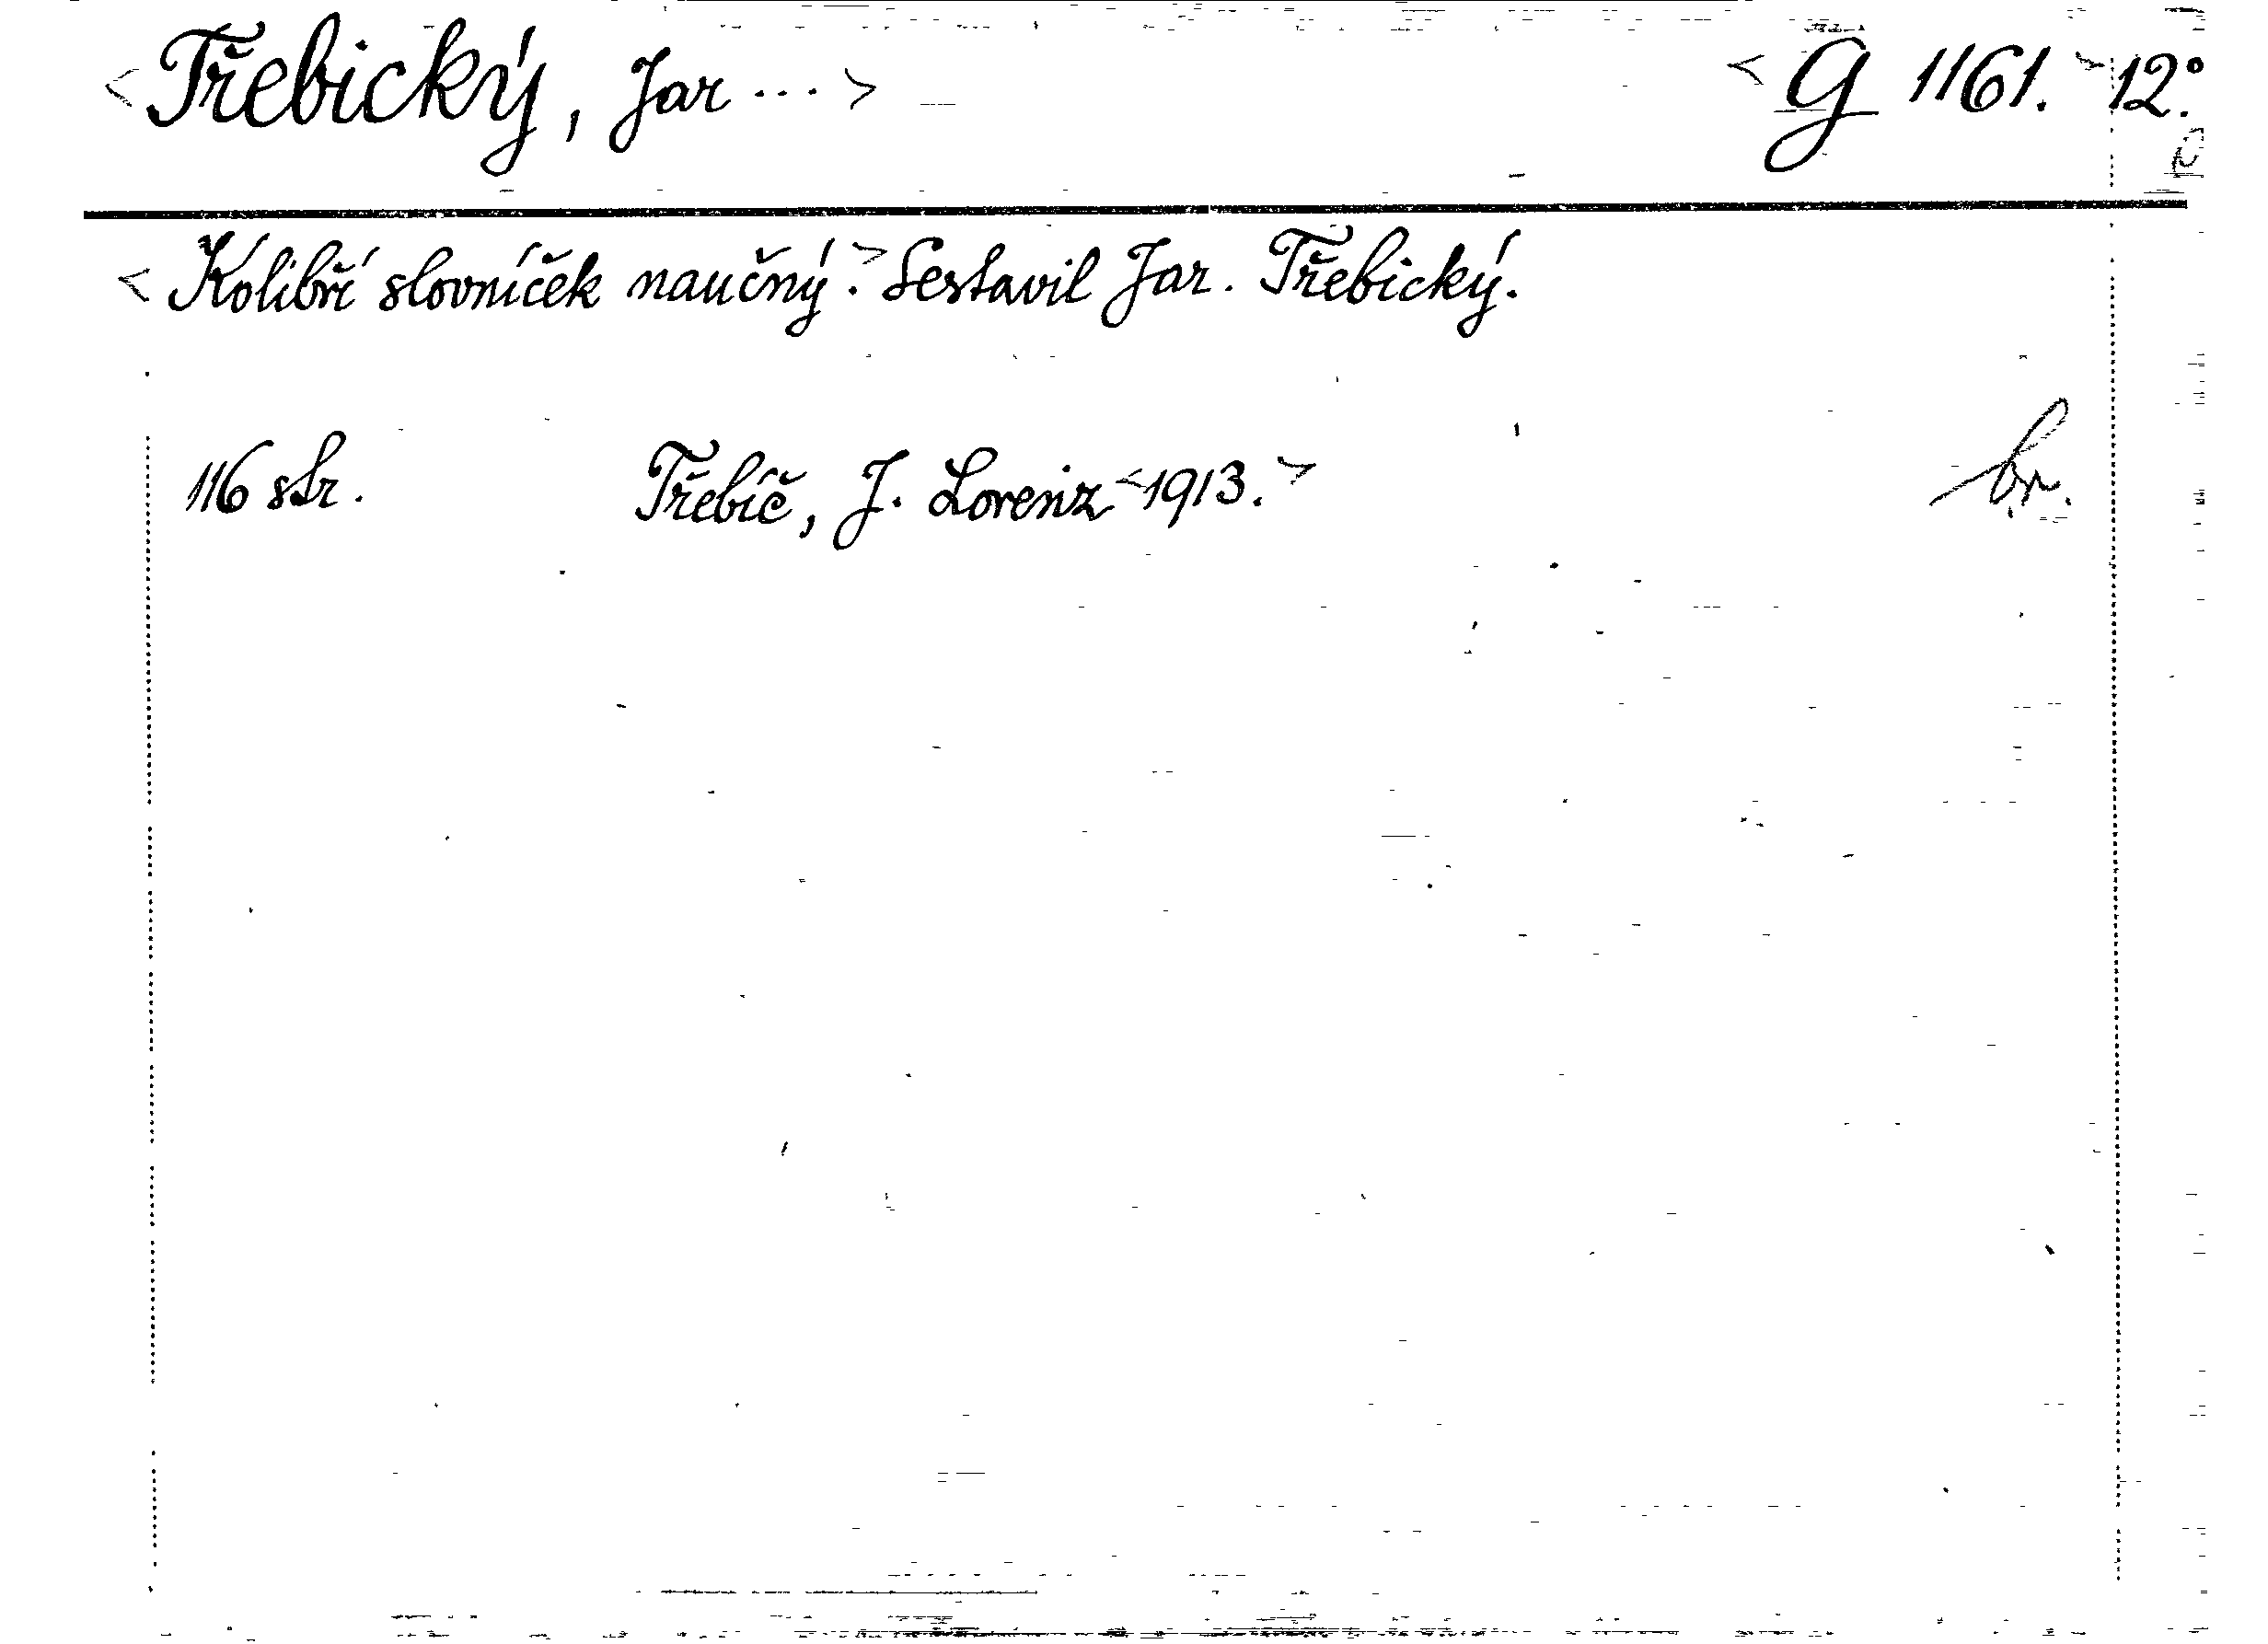 <Třebický, Jar...> <G 1161.> 12.°
<Kolibří slovníček naučný.> Sestavil Jar. Třebický.
116 str. Třebíč, J. Lorenz <1913.> br.